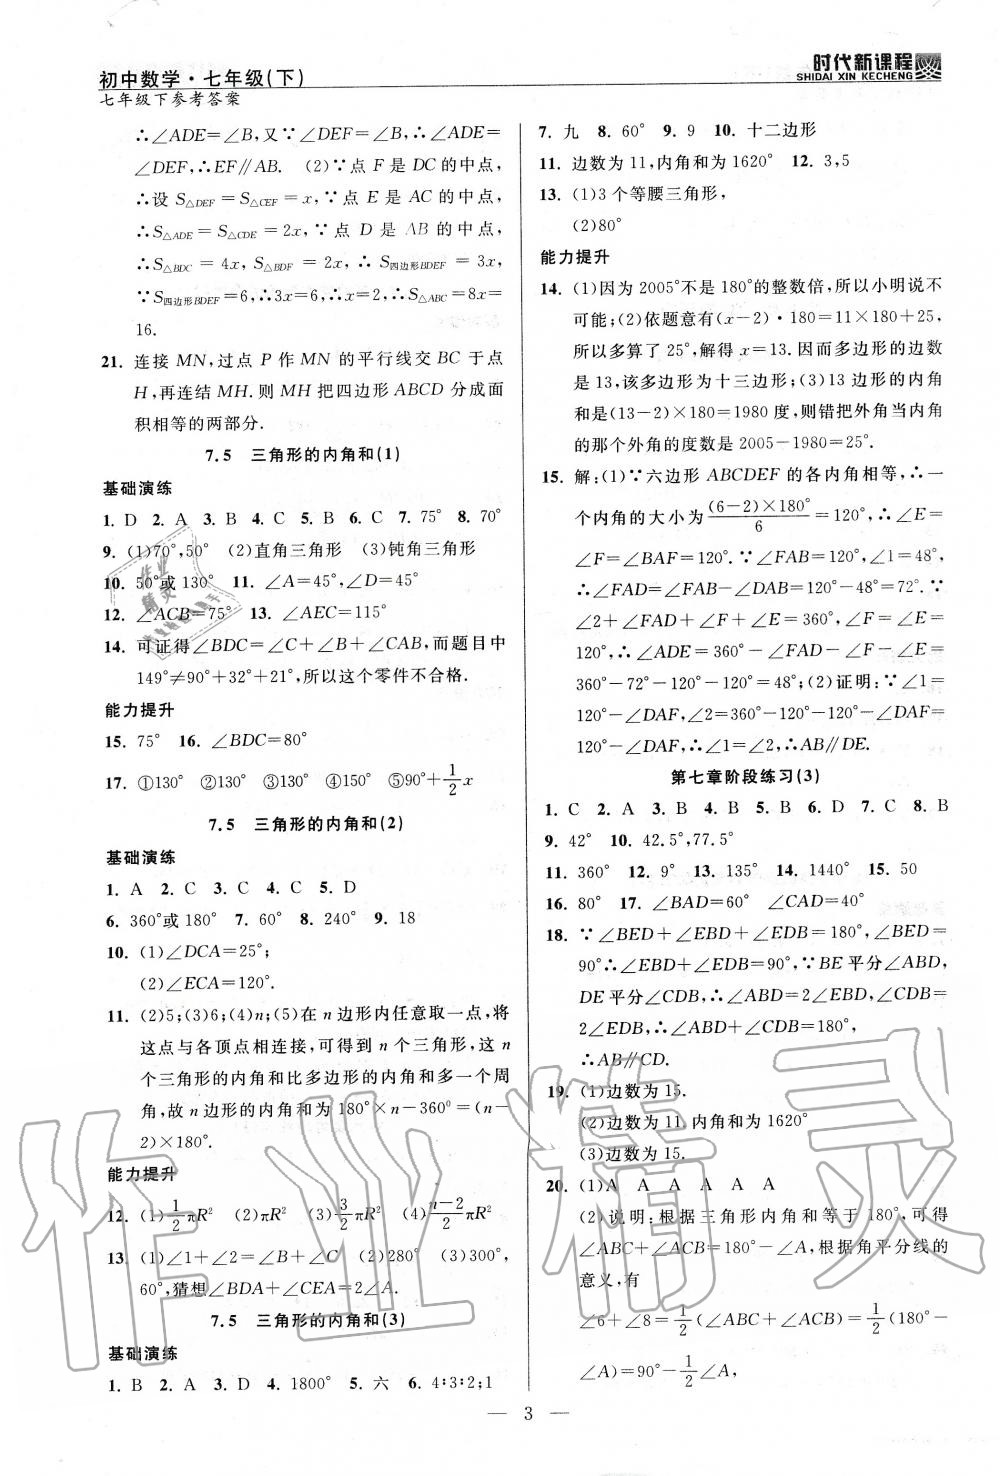 初中数学·七年级(下)
七年级下参考答案
时代新课程
SHIDAI XIN KECHENG
∴∠ADE=∠B,又∵∠DEF=∠B,∴∠ADE=
∠DEF,∴EF∥AB. (2)∵点 F 是 DC 的中点,
∴设 S△DEF=S△CEF=x,∵点 E 是 AC 的中点,
∴S△ADE=S△CDE=2x,∵点 D 是 AB 的中点,
∴S△BDC=4x, S△BDF=2x,∴S四边形BDEF=3x,
∵S四边形BDEF=6,∴3x=6,∴x=2,∴S△ABC=8x=
16.
21. 连接 MN,过点 P 作 MN 的平行线交 BC 于点
H,再连结 MH.则 MH 把四边形 ABCD 分成面
积相等的两部分.
7.5 三角形的内角和(1)
基础演练
1. D 2. A 3. B 4. C 5. B 6. C 7. 75° 8. 70°
9. (1)70°,50° (2)直角三角形 (3)钝角三角形
10. 50°或130° 11. ∠A=45°,∠D=45°
12. ∠ACB=75° 13. ∠AEC=115°
14. 可证得∠BDC=∠C+∠B+∠CAB,而题目中
149°≠90°+32°+21°,所以这个零件不合格.
能力提升
15. 75° 16. ∠BDC=80°
17. ①130° ②130° ③130° ④150° ⑤90°+1/2x
7.5 三角形的内角和(2)
基础演练
1. A 2. C 3. C 4. C 5. D
6. 360°或180° 7. 60° 8. 240° 9. 18
10. (1)∠DCA=25°;
(2)∠ECA=120°.
11. (2)5;(3)6;(4)n;(5)在 n 边形内任意取一点,将
这点与各顶点相连接,可得到 n 个三角形,这 n
个三角形的内角和比多边形的内角和多一个周
角,故 n 边形的内角和为 180°×n-360⁰=(n-
2)×180°.
能力提升
12. (1)1/2πR² (2)πR² (3)3/2πR² (4)n-2/2πR²
13. (1)∠1+∠2=∠B+∠C (2)280° (3)300°,
60°,猜想∠BDA+∠CEA=2∠A.
7.5 三角形的内角和(3)
基础演练
1. B 2. A 3. A 4. 1800° 5. 六 6. 4:3:2;1
7. 九 8. 60° 9. 9 10. 十二边形
11. 边数为11,内角和为1620° 12. 3,5
13. (1)3个等腰三角形,
(2)80°
能力提升
14. (1)因为2005°不是180°的整数倍,所以小明说不
可能;(2)依题意有(x-2)·180=11×180+25,
所以多算了25°,解得 x=13.因而多边形的边数
是13,该多边形为十三边形;(3)13边形的内角
和是(13-2)×180=1980度,则错把外角当内角
的那个外角的度数是2005-1980=25°.
15. 解:(1)∵六边形 ABCDEF 的各内角相等,∴一
个内角的大小为(6-2)×180°/6=120°,∴∠E=
∠F=∠BAF=120°.∵∠FAB=120°,∠1=48°,
∴∠FAD=∠FAB-∠DAB=120°-48°=72°.∵
∠2+∠FAD+∠F+∠E=360°,∠F=∠E=
120°,∴∠ADE=360°-∠FAD-∠F-∠E=
360°-72°-120°-120°=48°;(2)证明:∵∠1=
120°-∠DAF,∠2=360°-120°-120°-∠DAF=
120°-∠DAF,∴∠1=∠2,∴AB∥DE.
第七章阶段练习(3)
1. C 2. A 3. B 4. B 5. B 6. D 7. C 8. B
9. 42° 10. 42.5°,77.5°
11. 360° 12. 9° 13. 135° 14. 1440° 15. 50
16. 80° 17. ∠BAD=60° ∠CAD=40°
18. ∵∠BED+∠EBD+∠EDB=180°,∠BED=
90°∴∠EBD+∠EDB=90°,∵BE平分∠ABD,
DE平分∠CDB,∴∠ABD=2∠EBD,∠CDB=
2∠EDB,∴∠ABD+∠CDB=180°,
∴AB∥CD.
19. (1)边数为15.
(2)边数为11 内角和为1620°
(3)边数为15.
20. (1)A A A A A A
(2)说明:根据三角形内角和等于180°,可得
∠ABC+∠ACB=180°-∠A,根据角平分线的
意义,有
∠6+∠8=1/2(∠ABC+∠ACB)=1/2(180°-
∠A)=90°-1/2∠A,
— 3 —
作业精灵